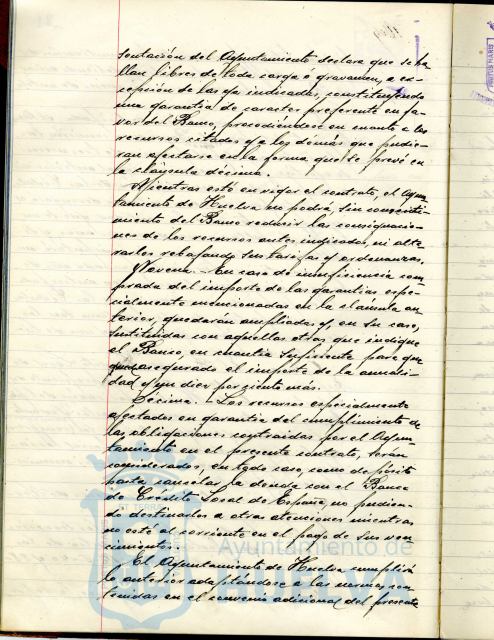 sentación del Ayuntamiento declara que se ha-
llan libres de toda carga o gravamen, a ex-
cepción de las ya indicadas, constituyendo
una garantía de caracter preferente en fa-
vor del Banco, procediéndose en cuanto a los
recursos citados y a los demás que pudie-
ran afectarse en la forma que se prevé en
la cláusula décima.
Mientras esté en vigor el contrato, el Ayun-
tamiento de Huelva no podrá, sin consenti-
miento del Banco reducir las consignacio-
nes de los recursos antes indicados, ni alte-
rarlos rebajando sus tarifas y ordenanzas.
Novena.- En caso de insuficiencia com-
probada del importe de las garantias espe-
cialmente mencionadas en la cláusula an-
terior, quedarán ampliadas y, en su caso,
sustituidas con aquellas otras que indique
el Banco, en cuantía suficiente para que
quede asegurado el importe de la anuali-
dad y un diez por ciento más.
Décima.- Los recursos especialmente
afectados en garantia del cumplimiento de
las obligaciones contraidas por el Ayun-
tamiento en el presente contrato, serán
considerados, en todo caso, como depósito
hasta cancelar la deuda con el Banco
de Crédito Local de España, no pudien-
do destinarlos a otras atenciones mientras
no esté al corriente en el pago de sus ven-
cimientos.
El Ayuntamiento de Huelva cumplirá
lo anterior adaptándose a las normas con-
tenidas en el convenio adicional del presente
Ayuntamiento de
HUELVA